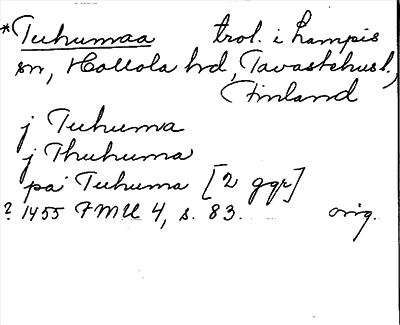 *Tuhumaa trol. i Lampis
sn, Hollola hd, Tavastehusl.,
Finland
j Tuhuma
j Thuhuma
på Tuhuma [2 ggr]
? 1455 FMU 4, s. 83. orig.